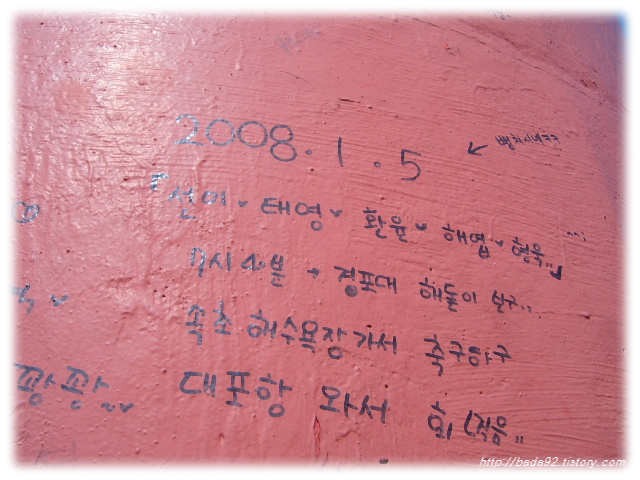 2008. 1. 5
「선미 태영 환윤 해엽 형욱..」
7시 40분 → 경포대 해돋이 보구..
속초 해수욕장가서 축구하구
꽝꽝~~ 대포항 와서 회 (적음..
http://bada92.tistory.com